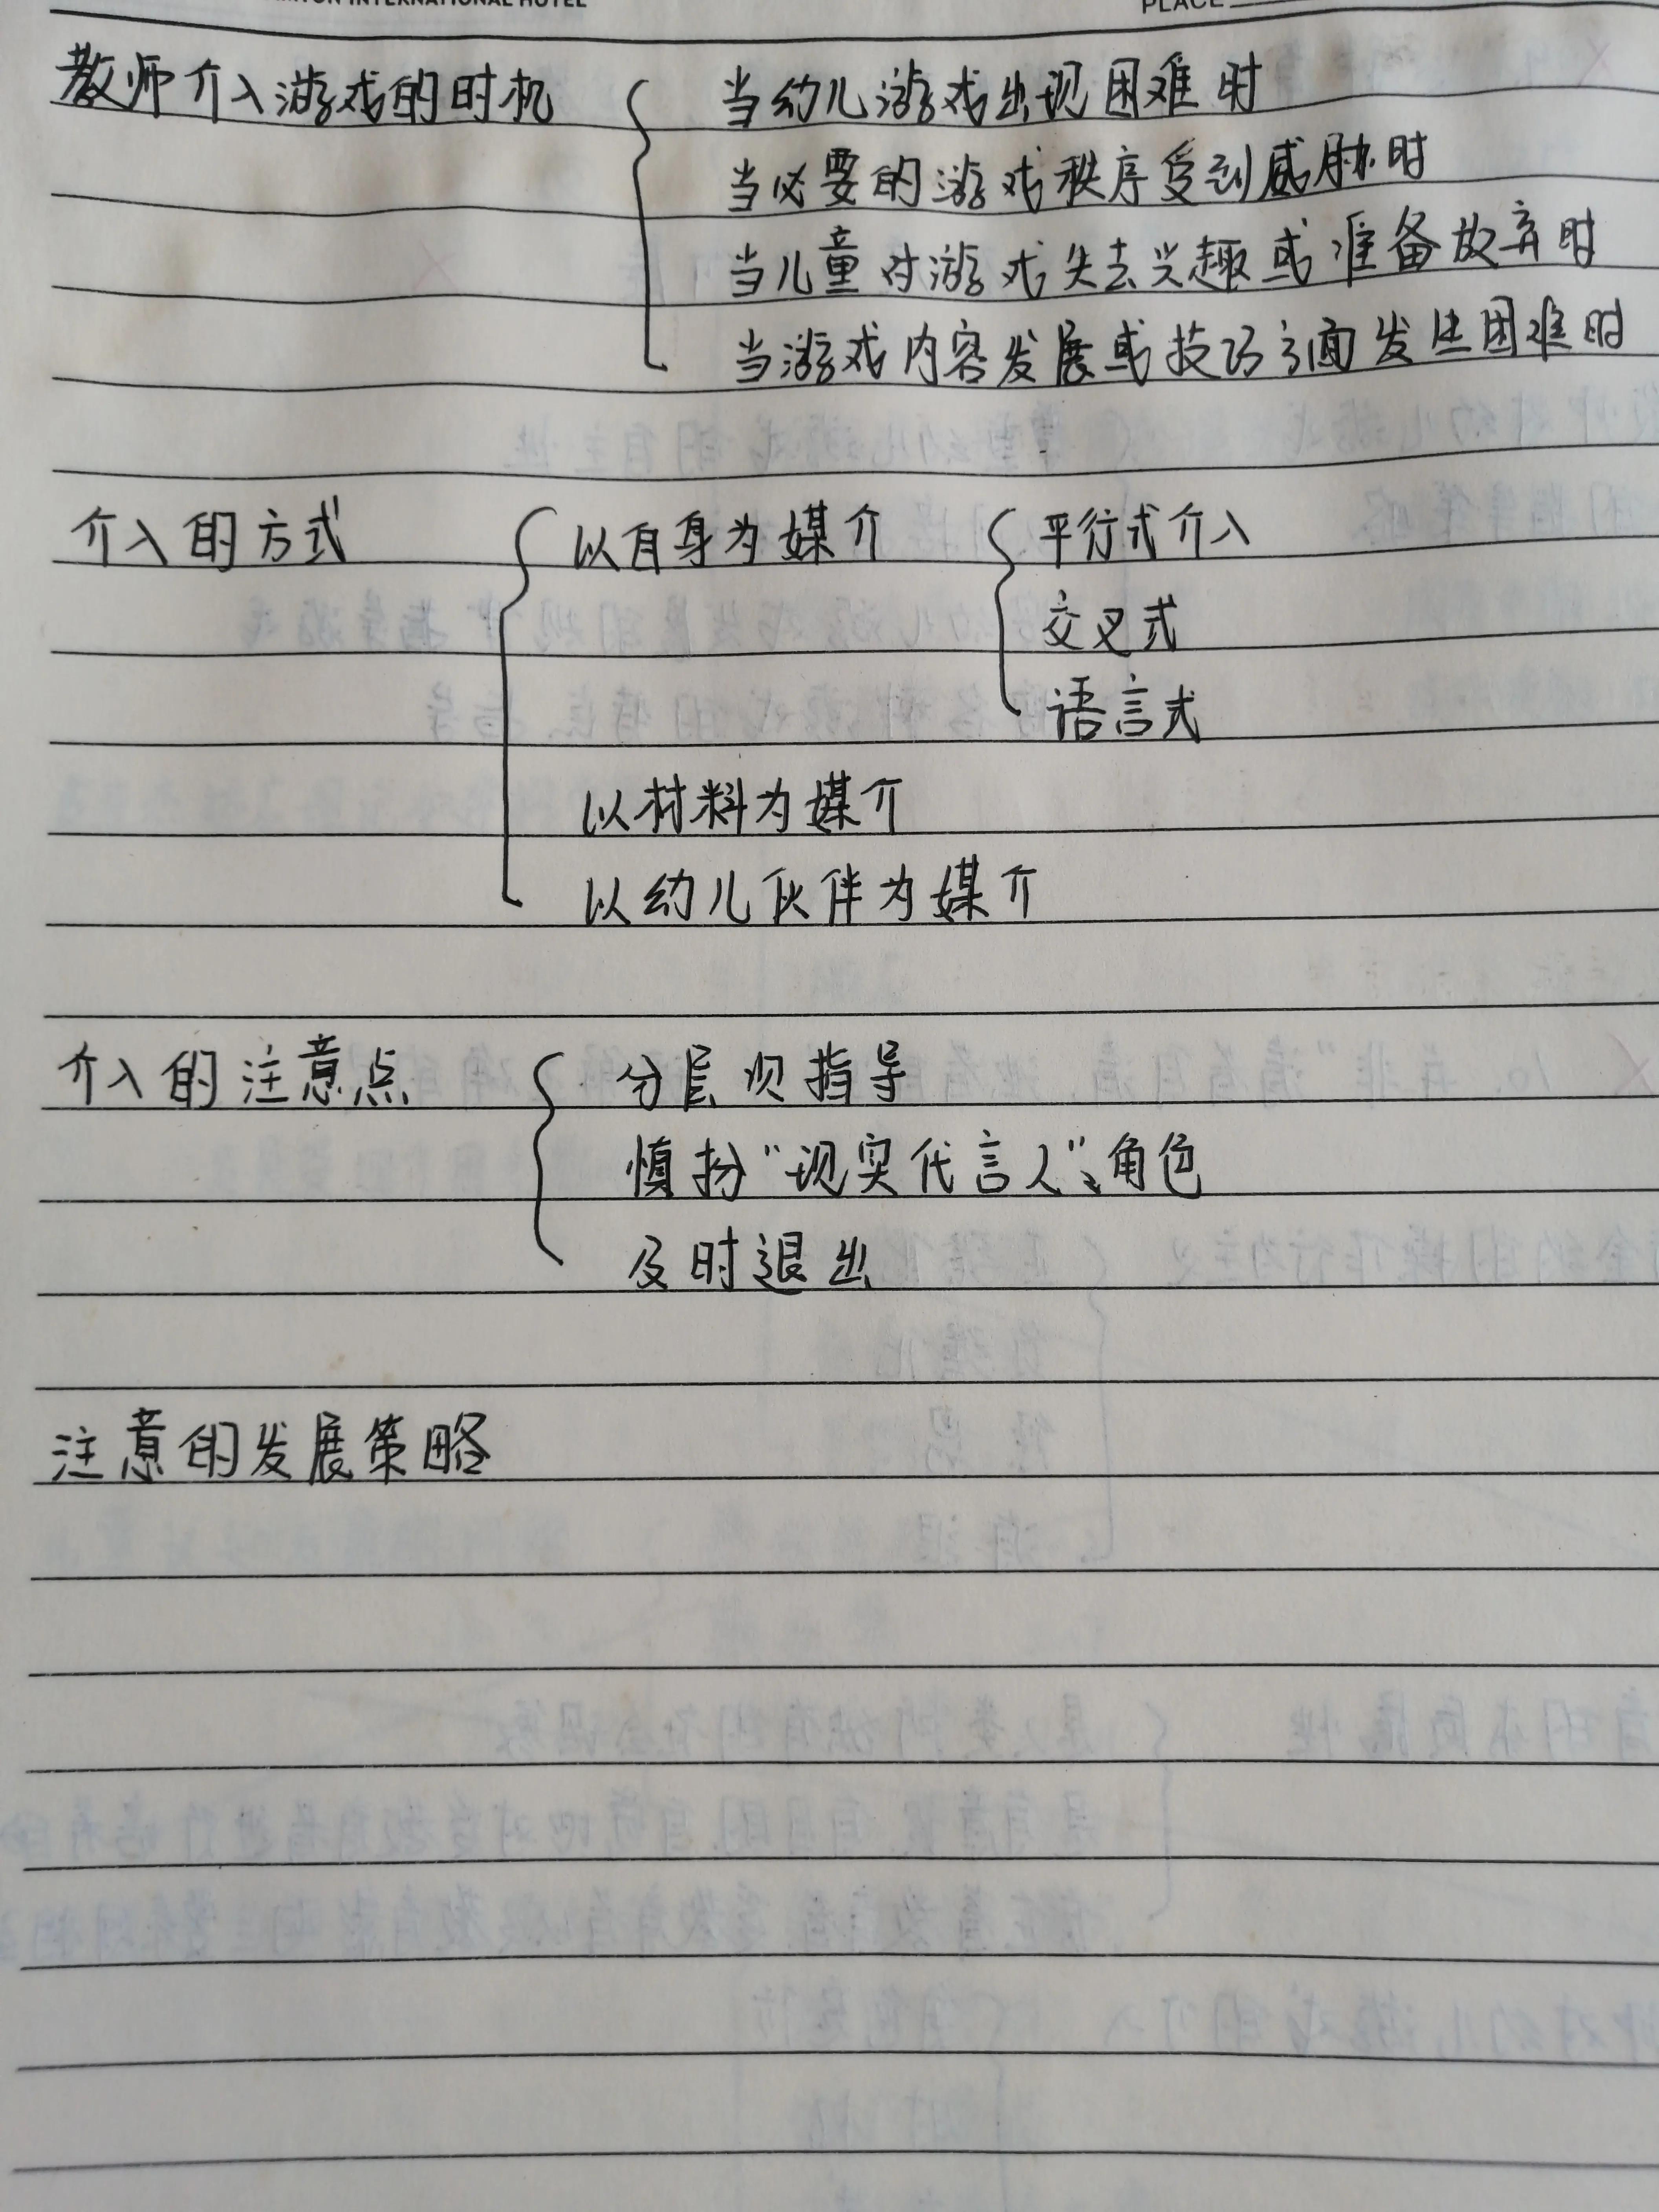 INTERNATIONAL HOTEL
PLACE
教师介入游戏的时机
当幼儿游戏出现困难时
当必要的游戏秩序受到威胁时
当儿童对游戏失去兴趣或准备放弃时
当游戏内容发展或技巧方面发生困难时
介入的方式
以自身为媒介
平行式介入
交叉式
语言式
以材料为媒介
以幼儿伙伴为媒介
介入的注意点
分层次指导
慎扮“现实代言人”角色
及时退出
注意的发展策略